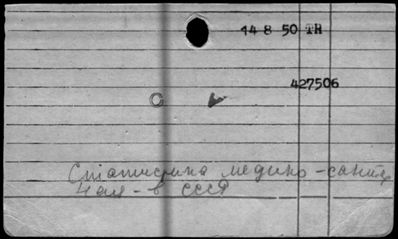 14 8 50 TH
427506
Статистика медико-санит.
в СССР